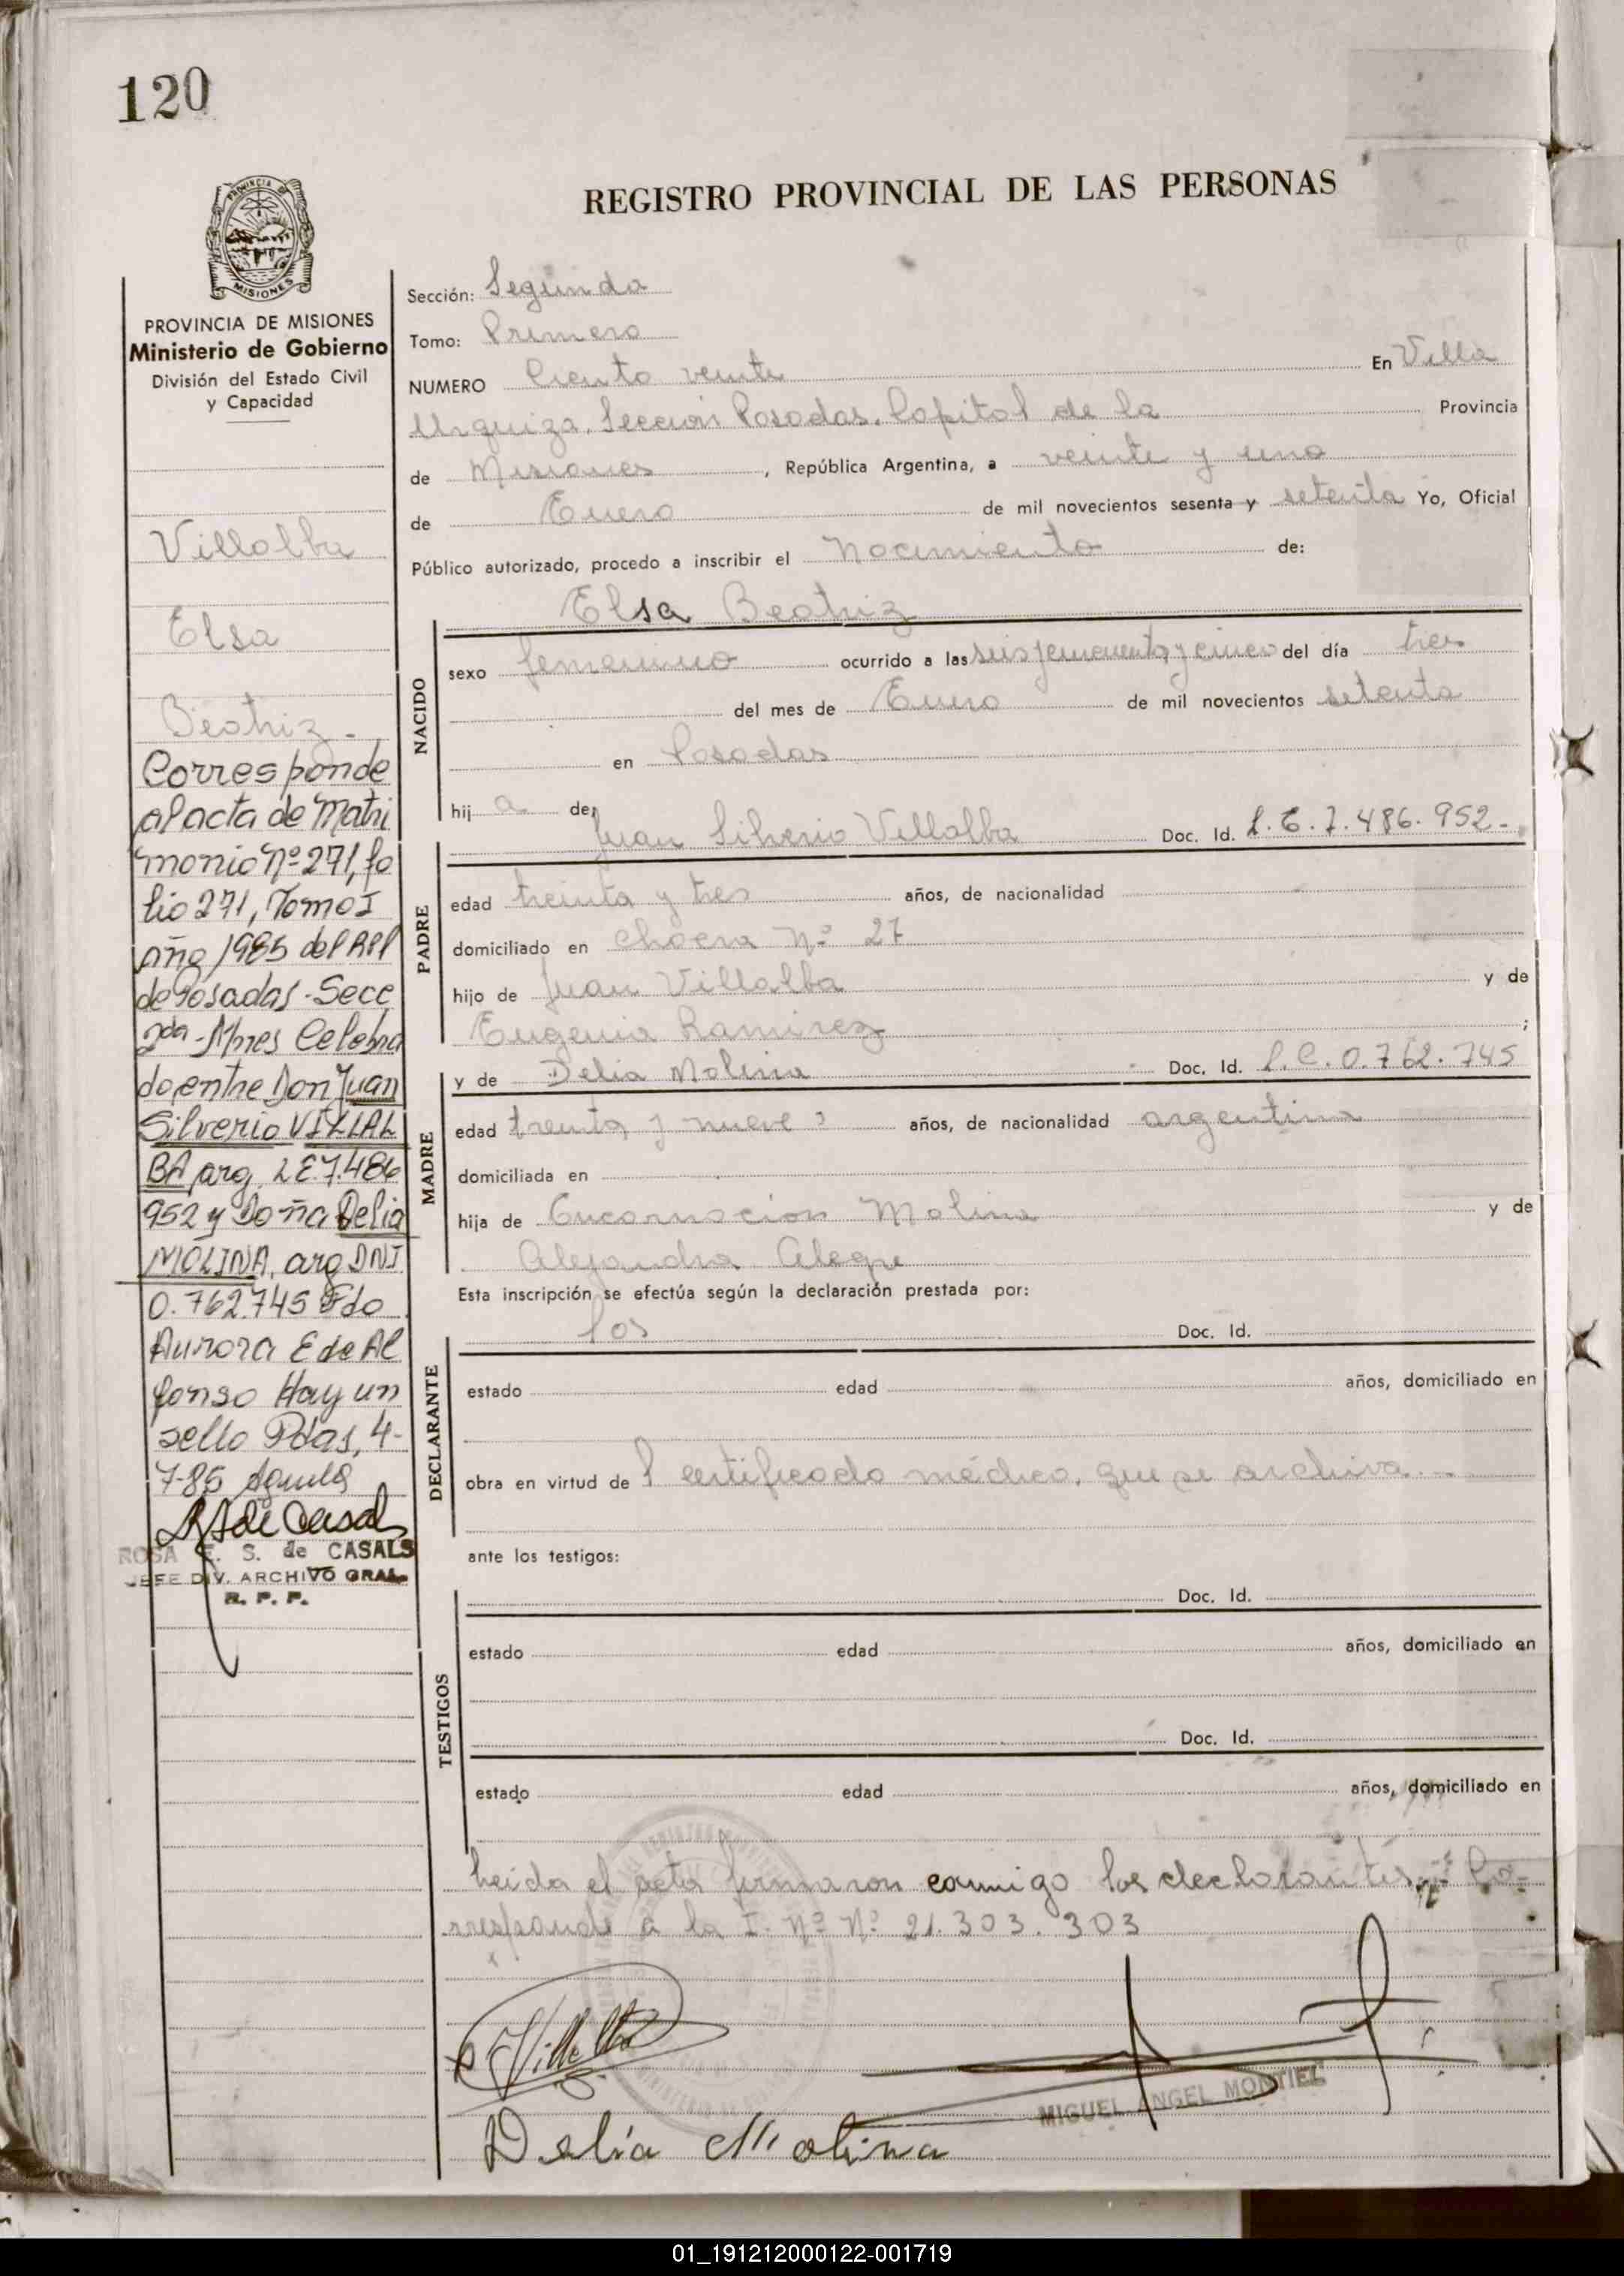 120
PROVINCIA DE
MISIONES
PROVINCIA DE MISIONES
Ministerio de Gobierno
División del Estado Civil
y Capacidad
Villalba
Elsa
Beatriz -
Corresponde
al acta de Matri
monio Nº 271, fo
lio 271, Tomo I
año 1985 del RPP
de Posadas - Secc
2da - Mnes Celebra
do entre Don Juan
Silverio VILLAL
BA arg. L E. 7.486
952 y Doña Delia
MOLINA, arg DNI
0.762.745 Fdo
Aurora E de Al
fonso Hay un
sello Pdas, 4-
7-85
ROSA E. S. de CASALS
JEFE DIV. ARCHIVO GRAL.
R. P. P.
REGISTRO PROVINCIAL DE LAS PERSONAS
Sección: Segunda
Tomo: Primero
NUMERO Ciento veinte En Villa
Urquiza, Sección Posadas, Capital de la Provincia
de Misiones, República Argentina, a veinte y uno
de Enero de mil novecientos sesenta y setenta Yo, Oficial
Público autorizado, procedo a inscribir el Nacimiento de:
Elsa Beatriz
NACIDO
sexo femenino ocurrido a las seis y cincuenta y cinco del día tres
del mes de Enero de mil novecientos setenta
en Posadas
hij a de
Juan Silverio Villalba Doc. Id. L.E.7.486.952.-
PADRE
edad treinta y tres años, de nacionalidad
domiciliado en Chacra Nº 27
hijo de Juan Villalba y de
Eugenia Ramirez ;
y de Delia Molina Doc. Id. L.C.0.762.745
MADRE
edad treinta y nueve años, de nacionalidad argentina
domiciliada en
hija de Encarnación Molina y de
Alejandra Alegre
Esta inscripción se efectúa según la declaración prestada por:
los Doc. Id.
DECLARANTE
estado edad años, domiciliado en
obra en virtud de l certificado médico, que se archiva...
ante los testigos:
Doc. Id.
TESTIGOS
estado edad años, domiciliado en
Doc. Id.
estado edad años, domiciliado en
Leida el acta firmaron conmigo los declarantes Co-
rresponde a la I. Nº Nº 21.303.303
Villalba
MIGUEL ANGEL MONTIEL
Delia Molina
01_191212000122-001719